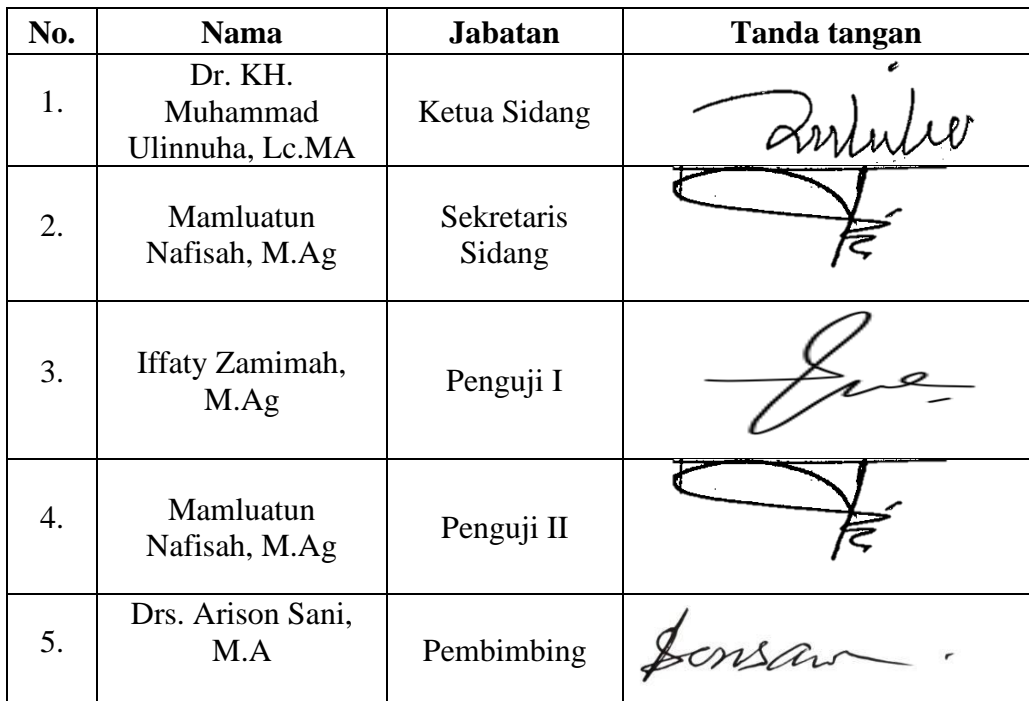 No. Nama Jabatan Tanda tangan
1.
Dr. KH.
Muhammad
Ulinnuha, Lc.MA
Ketua Sidang
2.
Mamluatun
Nafisah, M.Ag
Sekretaris
Sidang
3.
Iffaty Zamimah,
M.Ag
Penguji I
4.
Mamluatun
Nafisah, M.Ag
Penguji II
5.
Drs. Arison Sani,
M.A
Pembimbing